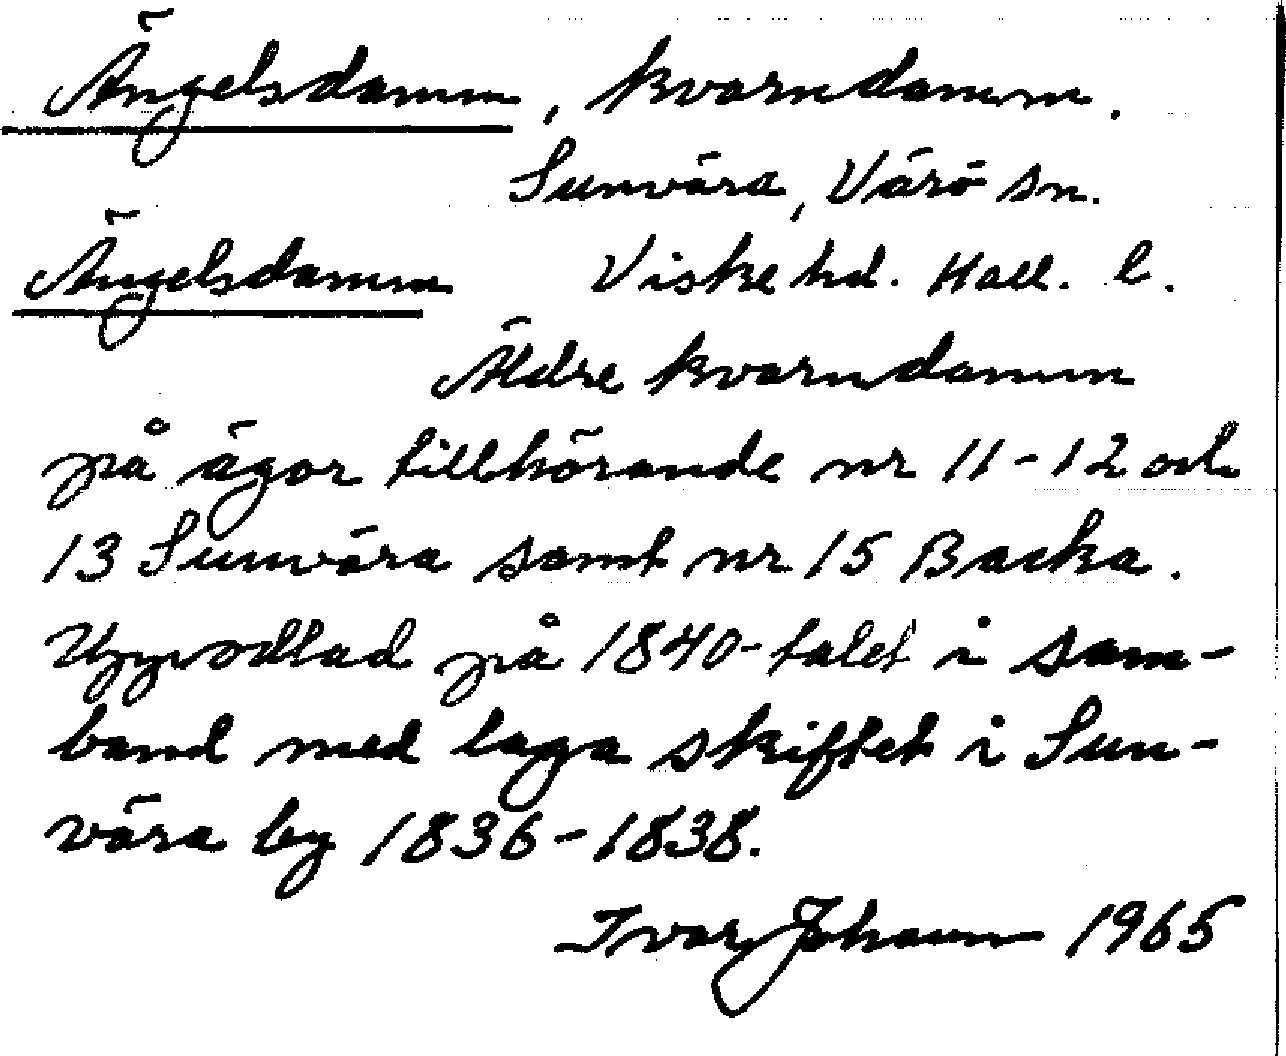 Ängelsdamm, kvarndamm.
Sunvära, Värö sn.
Ängelsdamm Viske hd. Hall. l.
Äldre kvarndamm
på ägor tillhörande nr 11-12 och
13 Sunvära samt nr 15 Backa.
Uppodlad på 1840-talet i sam-
band med laga skiftet i Sun-
vära by 1836-1838.
Ivar Johann 1965